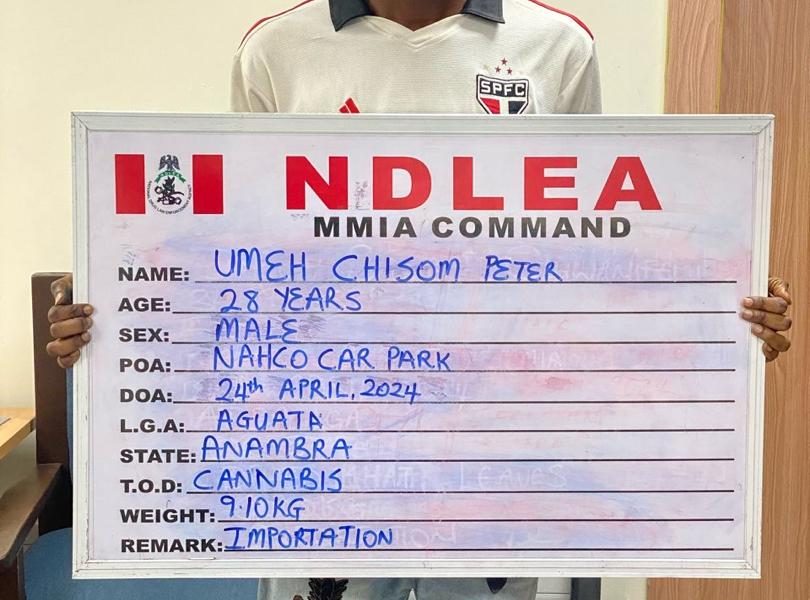 SPFC
NDLEA
MMIA COMMAND
NAME: UMEH CHISOM PETER
AGE: 28 YEARS
SEX: MALE
POA: NAHCO CAR PARK
DOA: 24th APRIL, 2024
L.G.A: AGUATA
STATE: ANAMBRA
T.O.D: CANNABIS
WEIGHT: 9.10KG
REMARK: IMPORTATION